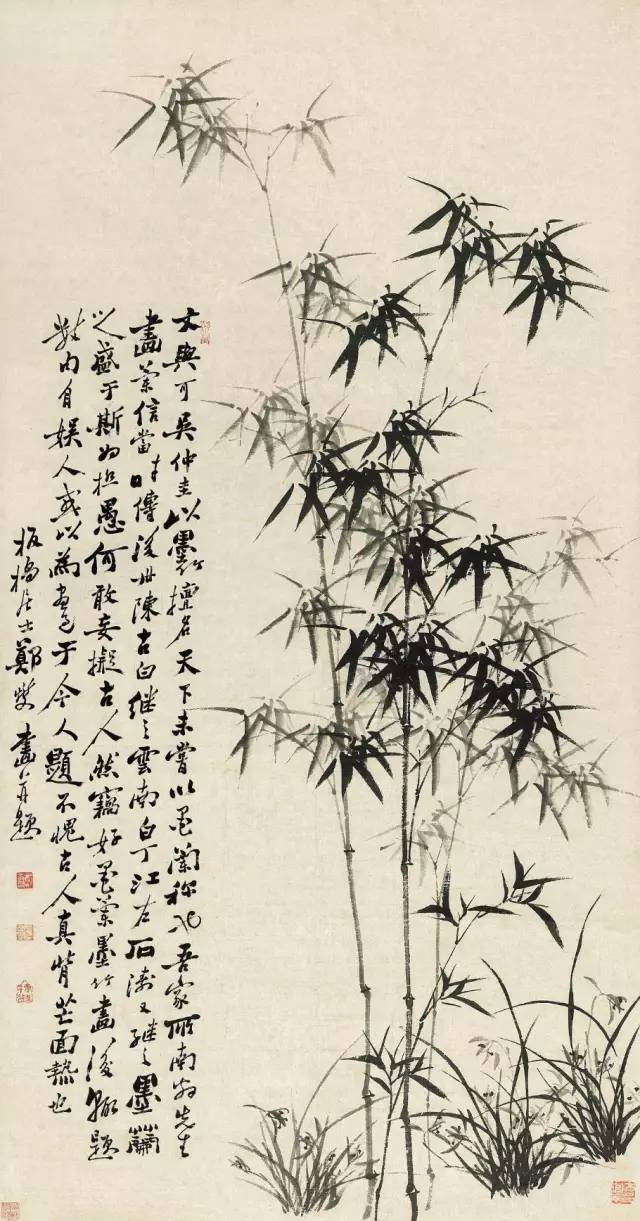 文與可吳仲圭以墨竹擅名天下未嘗以墨蘭稱也吾家所南翁先生
畫蘭信當時傳後世陳古白繼之雲南白丁江右石濤又繼之墨蘭
之盛于斯為極愚何敢妄擬古人然竊好墨蘭墨竹畫後輒題
自娛人或以為畫邁于今人題不愧古人真背芒面熱也
板橋居士鄭燮畫并題